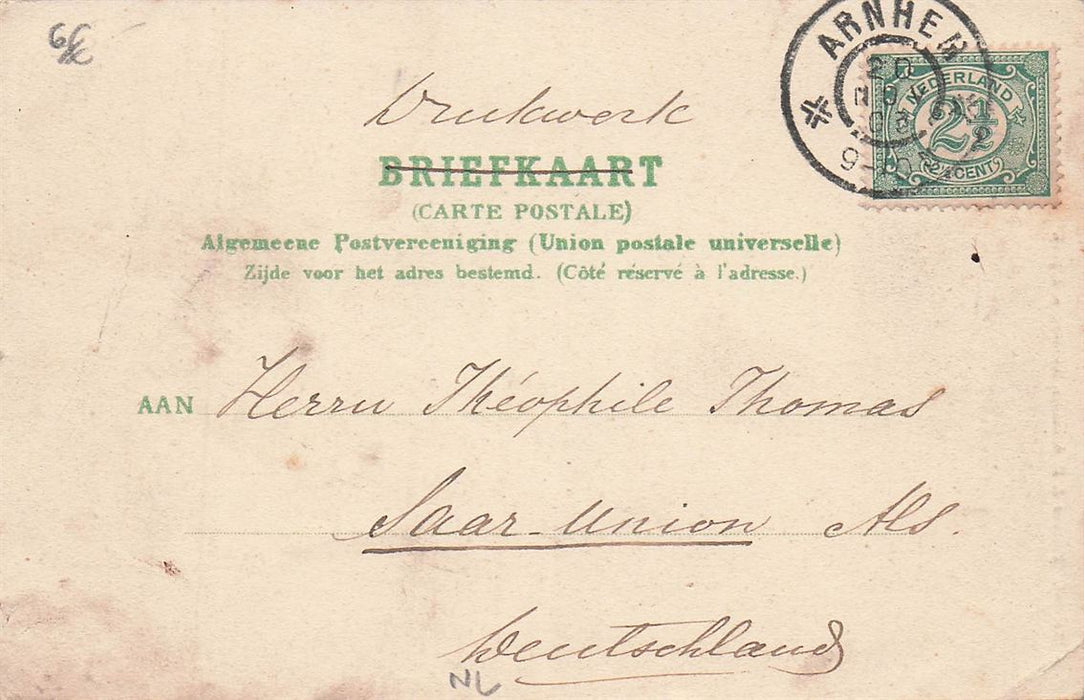 Drukwerk
BRIEFKAART
(CARTE POSTALE)
Algemeene Postvereeniging (Union postale universelle)
Zijde voor het adres bestemd. (Côté réservé à l'adresse.)
ARNHEM
NEDERLAND
2½
2½ CENT
AAN Herrn Théophile Thomas
Saar-Union Els.
Deutschland
NL